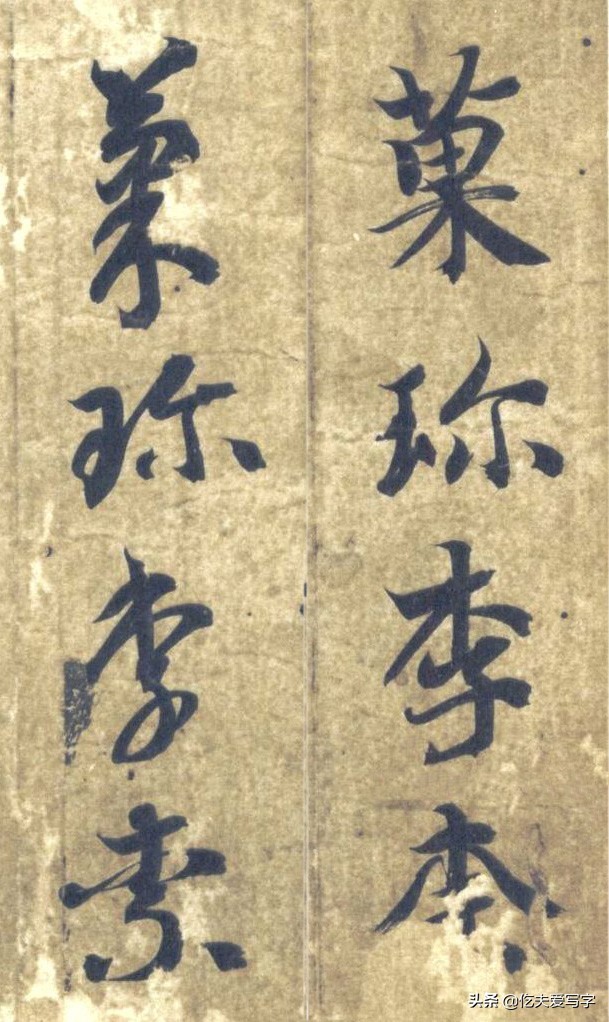 菓珎李柰
菓珎李柰
头条 @仡夫爱写字